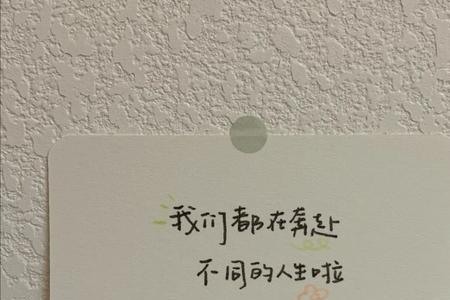 我们都在奔赴
不同的人生啦